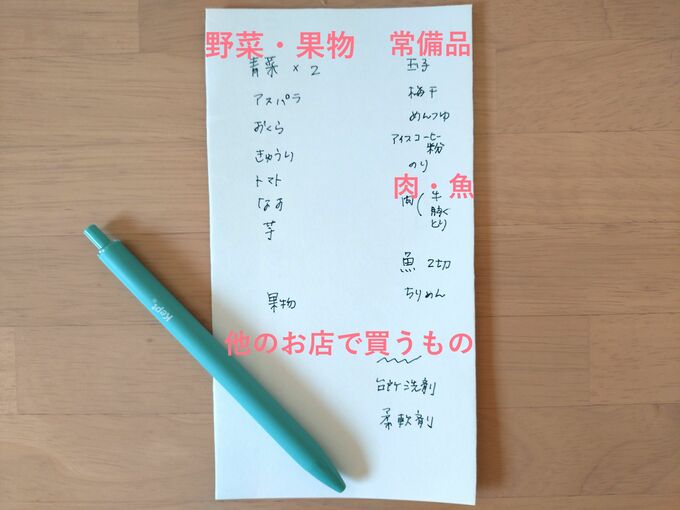 野菜・果物
青菜 × 2
アスパラ
おくら
きゅうり
トマト
なす
芋
果物
常備品
玉子
梅干
めんつゆ
アイスコーヒー
粉
のり
肉・魚
肉( 牛
豚
とり
魚 2切
ちりめん
他のお店で買うもの
台所洗剤
柔軟剤
Kept